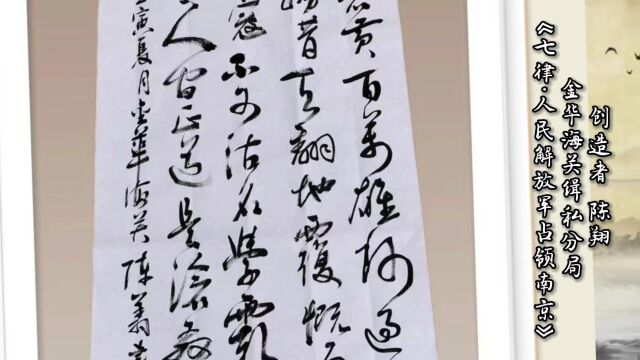 创造者 陈翔
金华海关缉私分局
《七律·人民解放军占领南京》
黄百万雄师过
昔天翻地覆慨
寇不可沽名学霸
人间正道是沧桑
寅夏月金华海关陈翔书